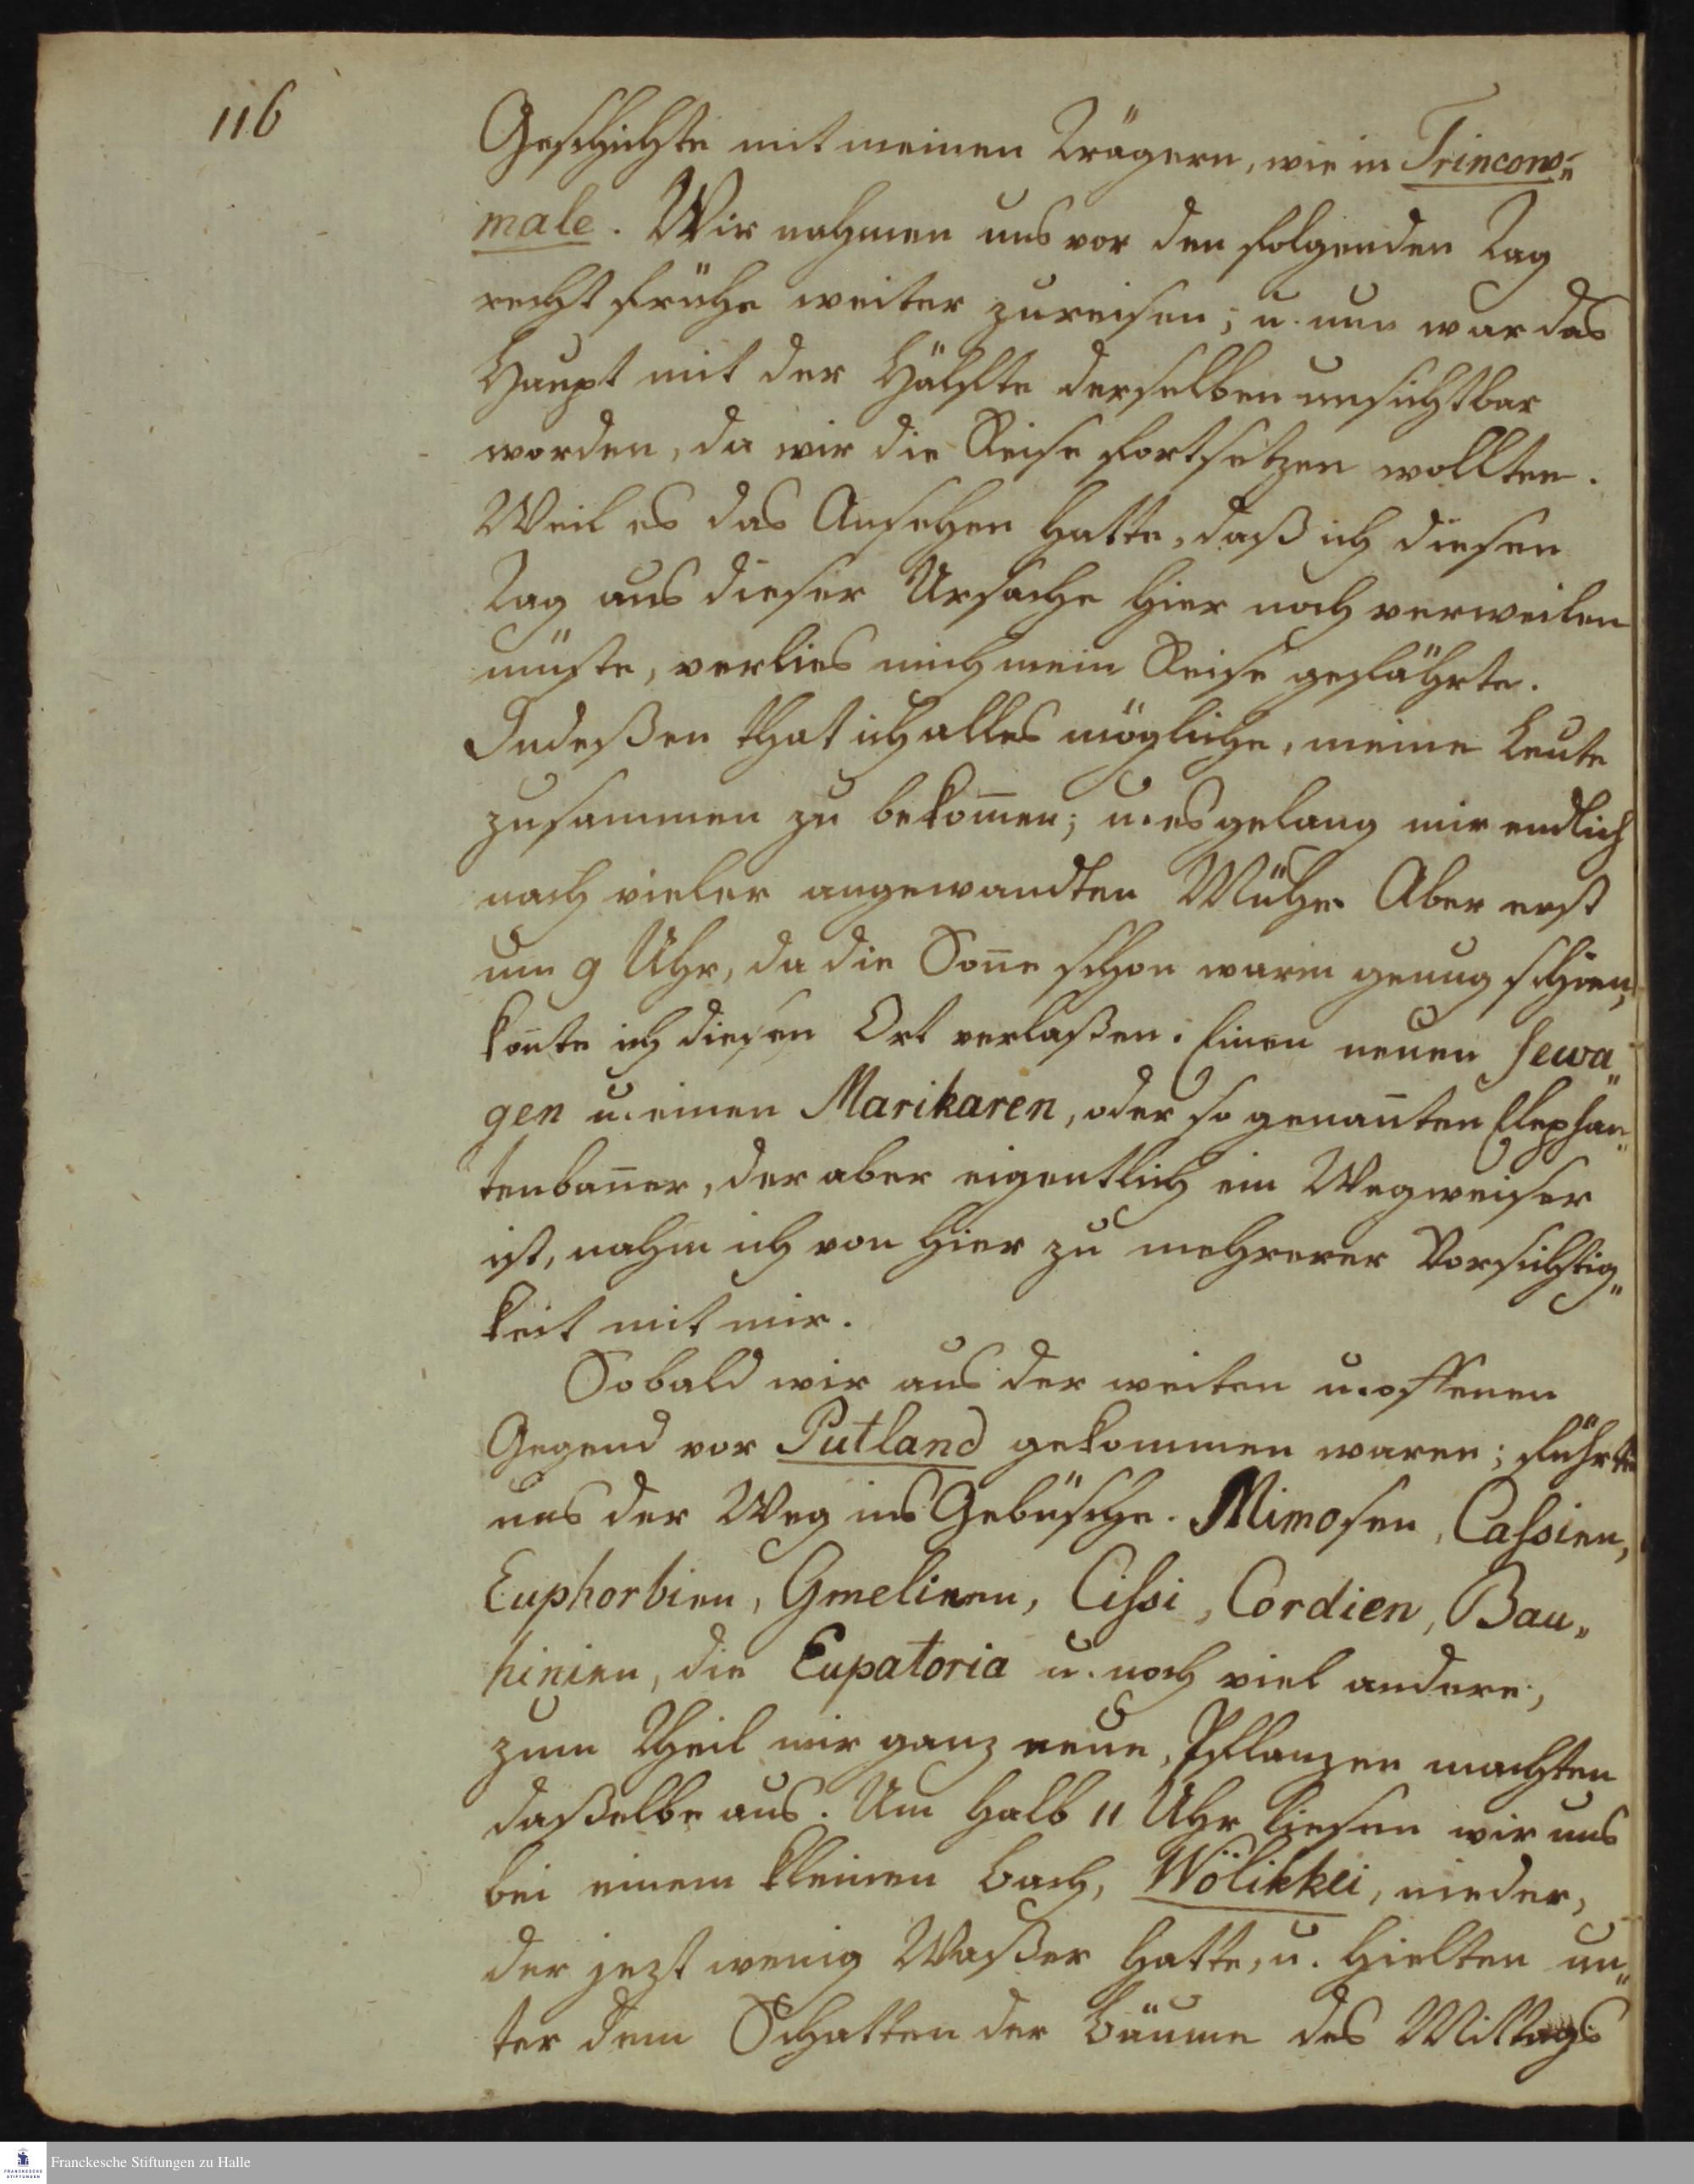 116
Geschichte mit meinen Trägern, wie in Trincono=
male. Wir nahmen uns vor den folgenden Tag
recht frühe weiter zureisen; u. nun war das
Haupt mit der Hälfte derselben unsichtbar
worden, da wir die Reise fortsetzen wollten.
Weil es das Ansehen hatte, daß ich diesen
Tag aus dieser Ursache hier noch verweilen
müste, verlies mich mein Reise gefährte.
Indeßen that ich alles mögliche, meine Leute
zusammen zu bekom̅en; u. es gelang mir endlich
nach vieler angewandten Mühe. Aber erst
um 9 Uhr, da die Son̅e schon warm genug schien,
kon̅te ich diesen Ort verlaßen. Einen neuen Sewa„
gen u. einen Marikaren, oder so genan̅ten Elephan„
tenban̅er, der aber eigentlich ein Wegweiser
ist, nahm ich von hier zu mehrerer Vorsichtig„
keit mit mir.
Sobald wir aus der weiten u. offenen
Gegend vor Putland gekommen waren; führte
uns der Weg ins Gebüsche. Mimosen, Cassien,
Euphorbien, Gmelinen, Cissi, Cordien, Bau„
hinien, die Eupatoria u. noch viel andere,
zum Theil mir ganz neue, Pflanzen machten
daßelbe aus. Um halb 11 Uhr liesen wir uns
bei einem kleinen Bach, Wölikkei, nieder,
der jezt wenig Waßer hatte, u. hielten un„
ter dem Schatten der Bäume des Mittags
Franckesche Stiftungen zu Halle
FRANCKESCHE
STIFTUNGEN